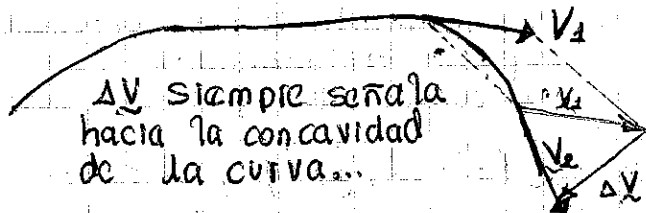 V1
ΔV siempre señala
hacia la concavidad
de la curva...
V1
V2
ΔV